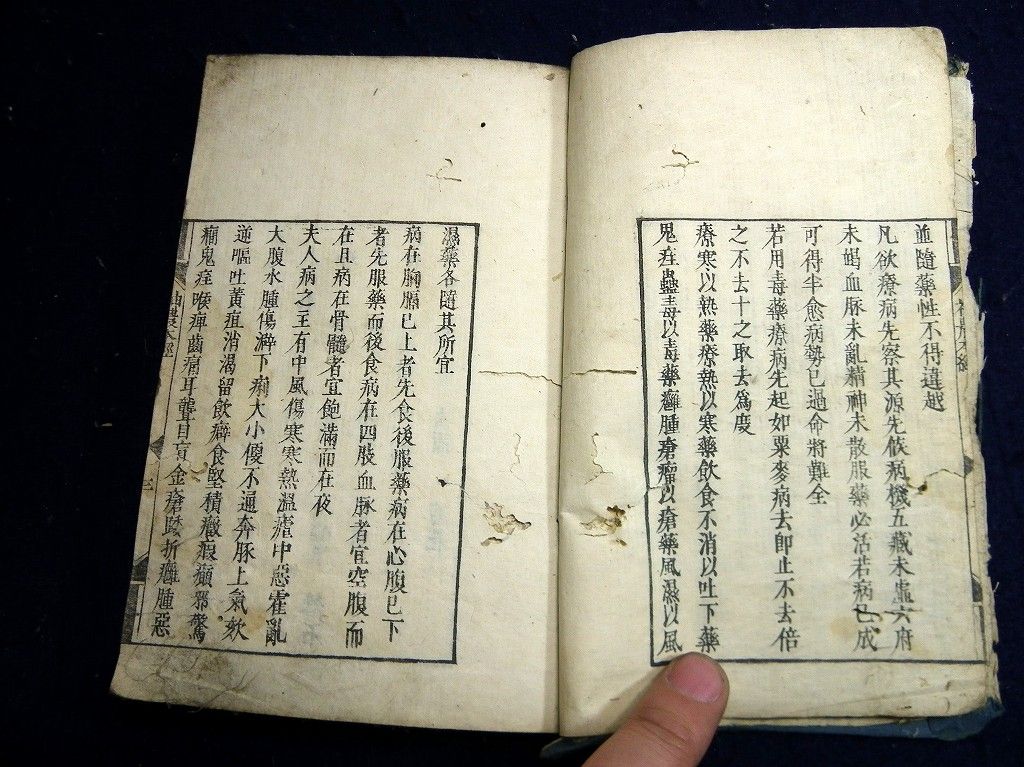 並隨藥性不得違越
凡欲療病先察其源先候病機五臧未虛六府
未竭血脉未亂精神未散服藥必活若病已成
可得半愈病勢已過命將難全
若用毒藥療病先起如粟麥病去即止不去倍
之不去十之取去為度
療寒以熱藥療熱以寒藥飲食不消以吐下藥
鬼疰蠱毒以毒藥癰腫瘡瘤以瘡藥風濕以風
濕藥各隨其所宜
病在胸膈已上者先食後服藥病在心腹已下
者先服藥而後食病在四肢血脉者宜空腹而
在旦病在骨髓者宜飽滿而在夜
夫人病之主有中風傷寒寒熱溫瘧中惡霍亂
大腹水腫傷澼下痢大小便不通奔豚上氣欬
逆嘔吐黃疸消渴留飲癖食堅積癥瘕癲邪驚
癇鬼疰喉痺齒痛耳聾目盲金瘡踒折癰腫惡
三